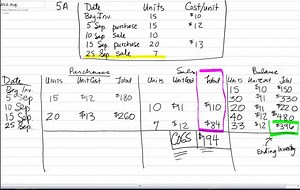 5A
Date Units Cost/unit
Beg Inv. 15 $10
5 Sep. purchase 15 $12
10 Sep sale 10
15 Sep. purchase 20 $13
25 Sep sale 7
Purchases Sales Balance
Date Units Unit Cost Total Units Unit Cost Total Units Unit Cost Total
Beg Inv. 15 $10 $150
5 Sep 15 $12 $180 30 $11 $330
10 Sep 10 $11 $110 20 $11 $220
15 Sep 20 $13 $260 40 $12 $480
25 Sep 7 $12 $84 33 $12 $396
COGS $194
Ending Inventory